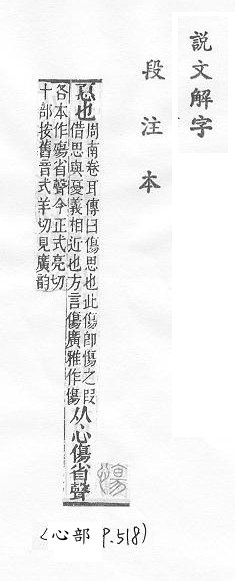 說文解字
段注本
𢝊也
周南卷耳傳曰傷思也此傷卽慯之叚
借思與𢝊義相近也方言傷廣雅作慯
从心傷省聲
各本作殤省聲今正式亮切
十部按舊音式羊切見廣韵
(心部 P.518)